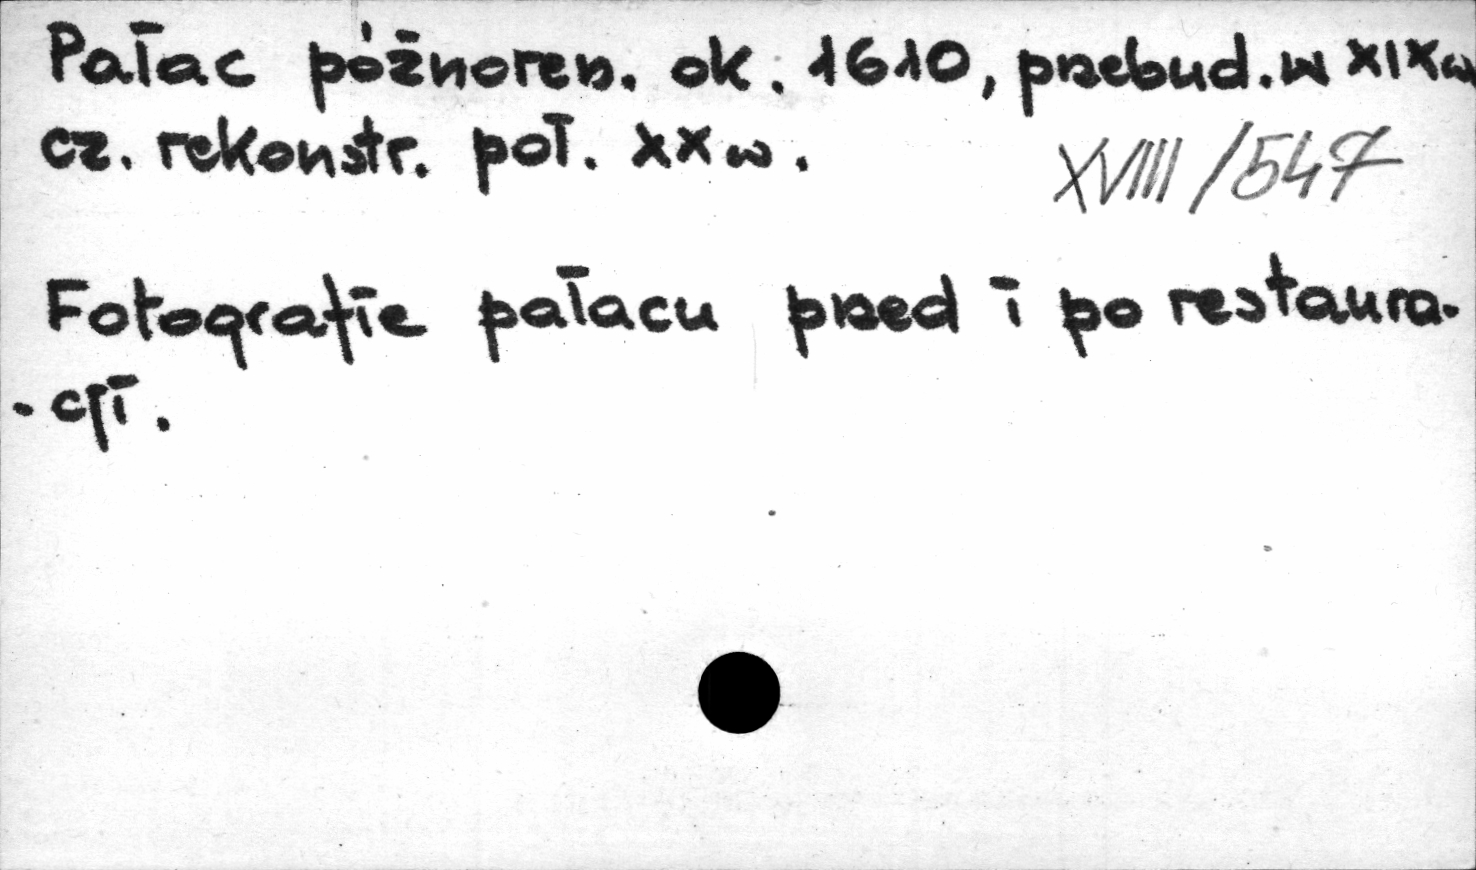 Pałac późnoren. ok. 1610, przebud. w XIX w
cz. rekonstr. poł. XX w.
XVIII/547
Fotografie pałacu przed i po restaura-
- cji.